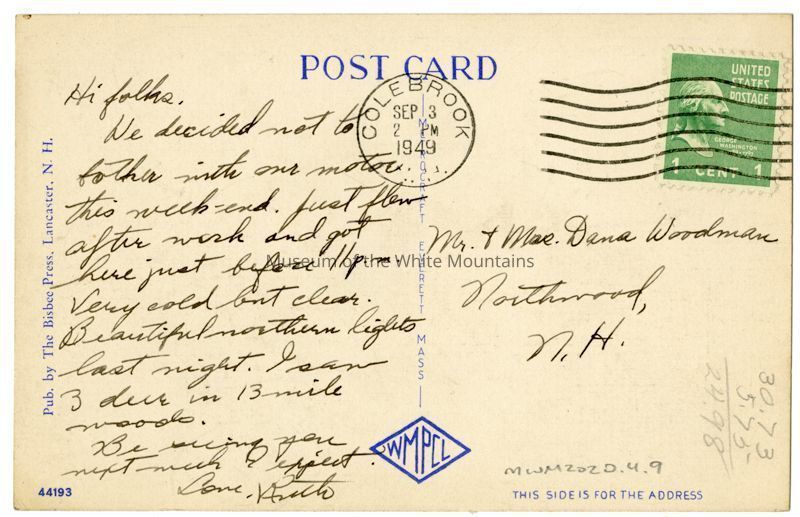 POST CARD
Hi folks.
We decided not to
bother with our motor
this week-end. Just flew
after work and got
here just before 11 pm.
Very cold but clear.
Beautiful northern lights
last night. I saw
3 deer in 13 mile
woods.
Be seeing you
next week I expect.
Love, Ruth
Pub. by The Bisbee Press, Lancaster, N. H.
44193
COLEBROOK
SEP 3
2 PM
1949
UNITED
STATES
POSTAGE
GEORGE
WASHINGTON
1 CENT 1
MEROCRAFT EVERETT MASS
Mr. & Mrs. Dana Woodman
Northwood,
N. H.
Museum of the White Mountains
WMPCL
MWM2020.4.9
THIS SIDE IS FOR THE ADDRESS
30.73
5.75
24.98